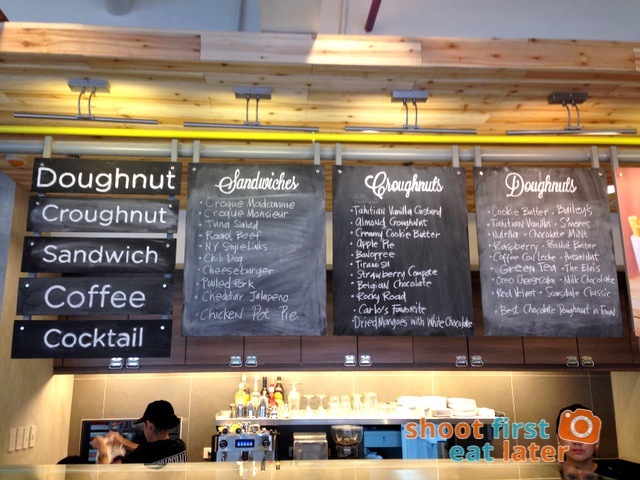 Doughnut
Croughnut
Sandwich
Coffee
Cocktail
Sandwiches
• Croque Madamme
• Croque Monsieur
• Tuna Salad
• Roast Beef
• NY Style Links
• Chili Dog
• Cheeseburger
• Pulled Pork
• Cheddar Jalapeno
• Chicken Pot Pie
Croughnuts
• Tahitian Vanilla Custard
• Almond Croughnut
• Creamy Cookie Butter
• Apple Pie
• Banoffee
• Tiramisu
• Strawberry Compote
• Belgian Chocolate
• Rocky Road
• Carlo's Favorite
• Dried Mangoes with White Chocolate
Doughnuts
• Cookie Butter • Bailey's
• Tahitian Vanilla • S'mores
• Nutella • Chocolate Mint
• Raspberry • Peanut Butter
• Coffee Con Leche • Hazelnut
• Green Tea • The Elvis
• Oreo Cheesecake • Milk Chocolate
• Red Velvet • Scarsdale Classic
• Best Chocolate Doughnut in Town
shoot first
eat later